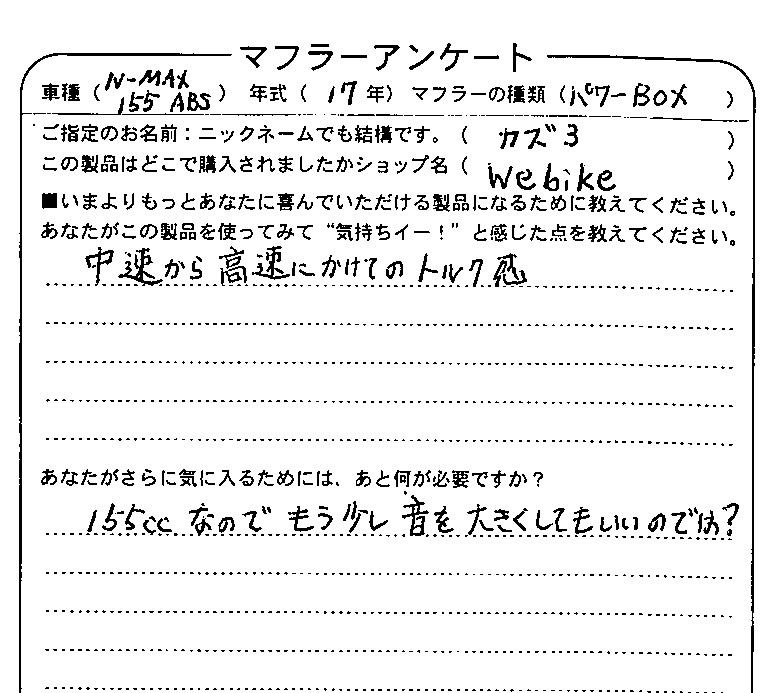 マフラーアンケート
車種（N-MAX 155 ABS） 年式（17年） マフラーの種類（パワーBOX）
ご指定のお名前：ニックネームでも結構です。（カズ3）
この製品はどこで購入されましたかショップ名（Webike）
■いまよりもっとあなたに喜んでいただける製品になるために教えてください。
あなたがこの製品を使ってみて“気持ちイー！”と感じた点を教えてください。
中速から高速にかけてのトルク感
あなたがさらに気に入るためには、あと何が必要ですか？
155cc なので もう少し 音を 大きくしてもいいのでは？